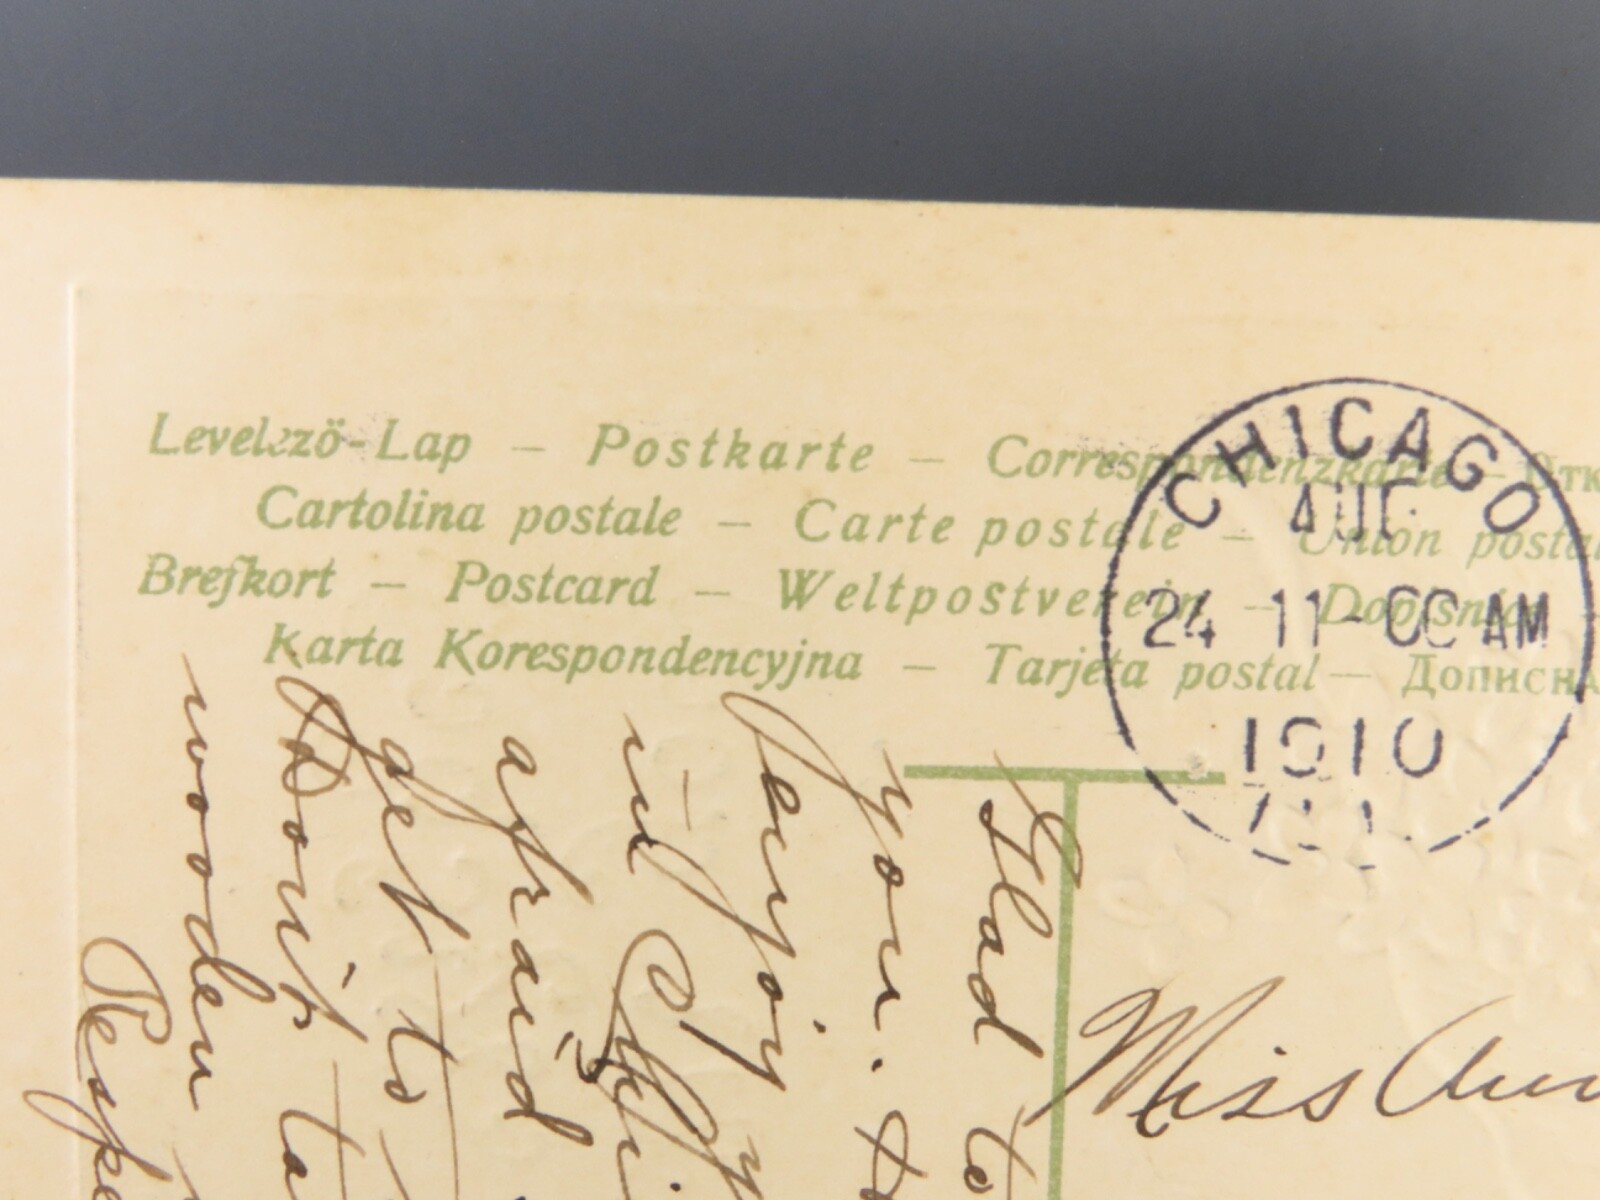 Levelező-Lap – Postkarte – Correspondenzkarte – Отк
Cartolina postale – Carte postale – Union postal
Brefkort – Postcard – Weltpostverein – Dopisnice –
Karta Korespondencyjna – Tarjeta postal – Дописна
CHICAGO
AUG
24 11-00 AM
1910
ILL.
Glad to
you.
enjoy
in
afraid
get to
Don't ta
wooden
Respe
Miss